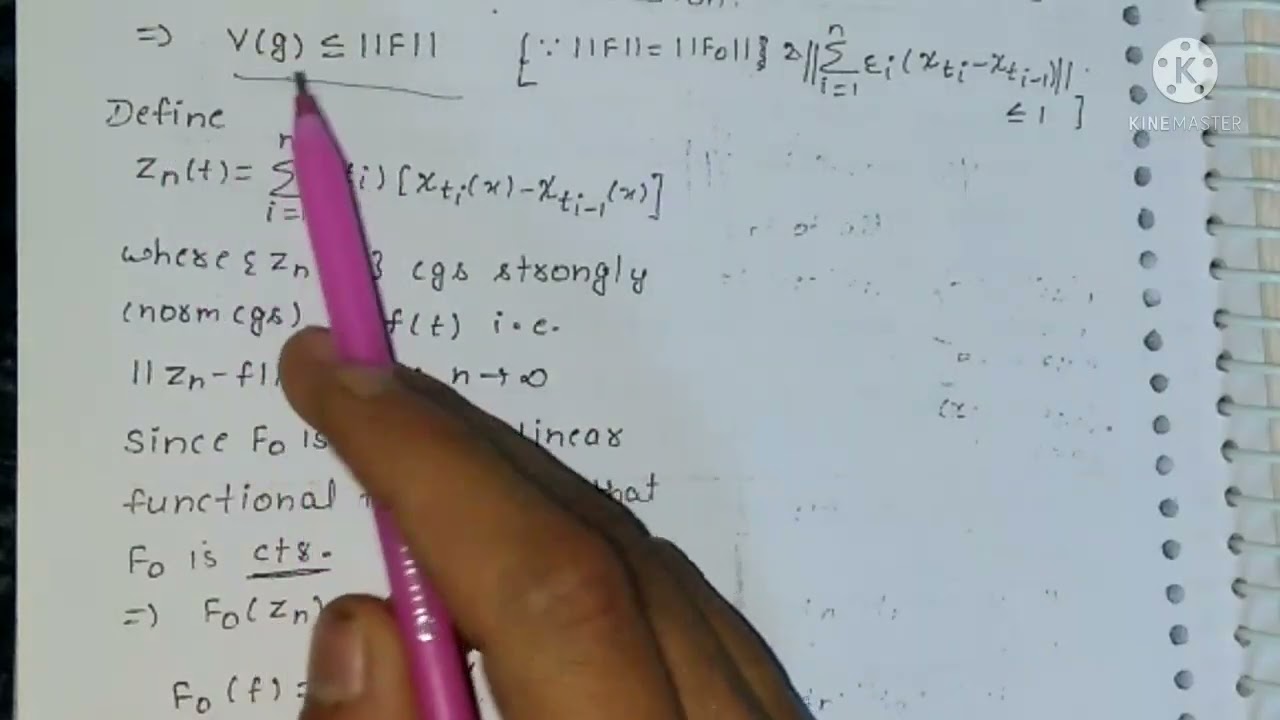 => V(g) ≤ ||F|| [∵ ||F|| = ||F₀||} & ||∑ⁿᵢ₌₁ εᵢ (x_tᵢ - x_tᵢ₋₁)|| ≤ 1 ]
Define
zₙ(t) = ∑ⁿᵢ₌₁ i) [x_tᵢ(x) - x_tᵢ₋₁(x)]
where { zₙ } cgs strongly
(norm cgs) f(t) i.e.
||zₙ - f|| n → ∞
Since F₀ is linear
functional that
F₀ is cts.
=> F₀(zₙ)
F₀(f) =
KINEMASTER